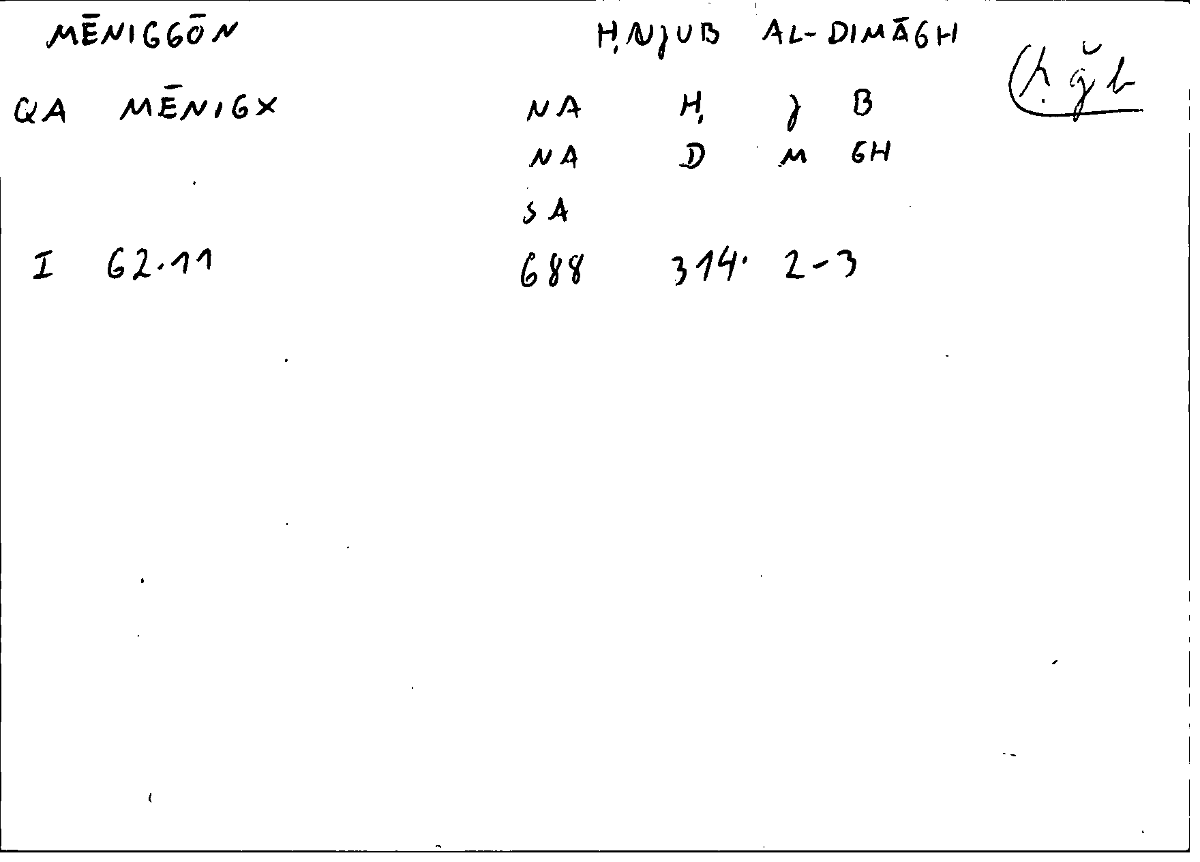 MĒNIGGŌN ḤNJUB AL-DIMĀGH
ḥǧb
QA MĒNIGX NA Ḥ J B
NA D M GH
SA
I 62.11 688 314. 2-3